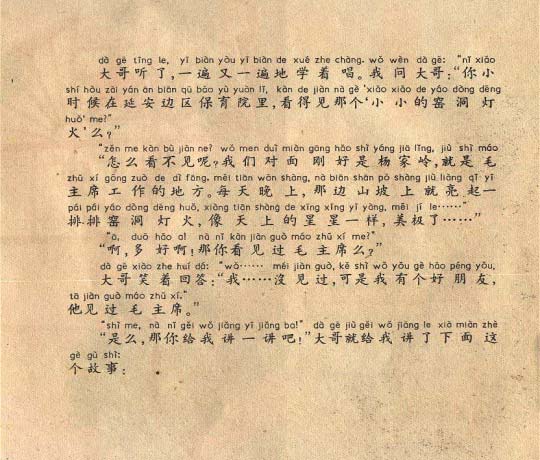 dà gē tīng le, yī biàn yòu yī biàn de xué zhe chàng. wǒ wèn dà gē: "nǐ xiǎo
大哥听了,一遍又一遍地学着唱。我问大哥:“你小
shí hòu zài yán ān biān qū bǎo yù yuàn lǐ, kàn de jiàn nà gè 'xiǎo xiǎo de yáo dòng dēng
时候在延安边区保育院里,看得见那个‘小小的窑洞灯
huǒ' me?"
火’么?”
"zěn me kàn bù jiàn ne? wǒ men duì miàn gāng hǎo shì yáng jiā lǐng, jiù shì máo
“怎么看不见呢?我们对面刚好是杨家岭,就是毛
zhǔ xí gōng zuò de dì fāng. měi tiān wǎn shàng, nà biān shān pō shàng jiù liàng qǐ yī
主席工作的地方,每天晚上,那边山坡上就亮起一
pái pái yáo dòng dēng huǒ, xiàng tiān shàng de xīng xīng yī yàng, měi jí le……"
排排窑洞灯火,像天上的星星一样,美极了……”
"ā, duō hǎo a! nà nǐ kàn jiàn guò máo zhǔ xí me?"
“啊,多好啊!那你看见过毛主席么?”
dà gē xiào zhe huí dá: "wǒ…… méi jiàn guò, kě shì wǒ yǒu gè hǎo péng yǒu,
大哥笑着回答:“我……没见过,可是我有个好朋友,
tā jiàn guò máo zhǔ xí."
他见过毛主席。”
"shì me, nà nǐ gěi wǒ jiǎng yī jiǎng ba!" dà gē jiù gěi wǒ jiǎng le xià miàn zhè
“是么,那你给我讲一讲吧!”大哥就给我讲了下面这
gè gù shì:
个故事: